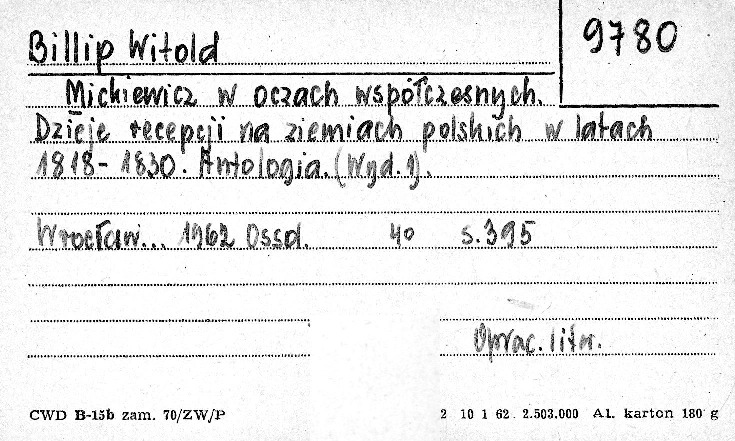 Billip Witold
9780
Mickiewicz w oczach współczesnych.
Dzieje recepcji na ziemiach polskich w latach
1818-1830. Antologia. (Wyd. 1).
Wrocław... 1962 Ossol. 4o s. 395
Oprac. liter.
CWD B-15b zam. 70/ZW/P
2 10 1 62. 2.503.000 A1. karton 180 g